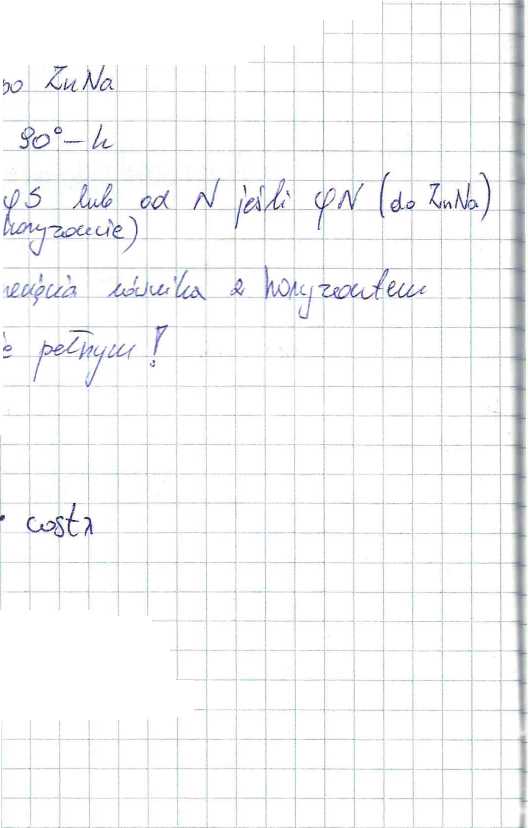 bo ZnNa
90° – h
φS lub od N jeśli φN (do ZnNa)
horyzoncie)
równika z horyzontem
pełnym!
• cost λ